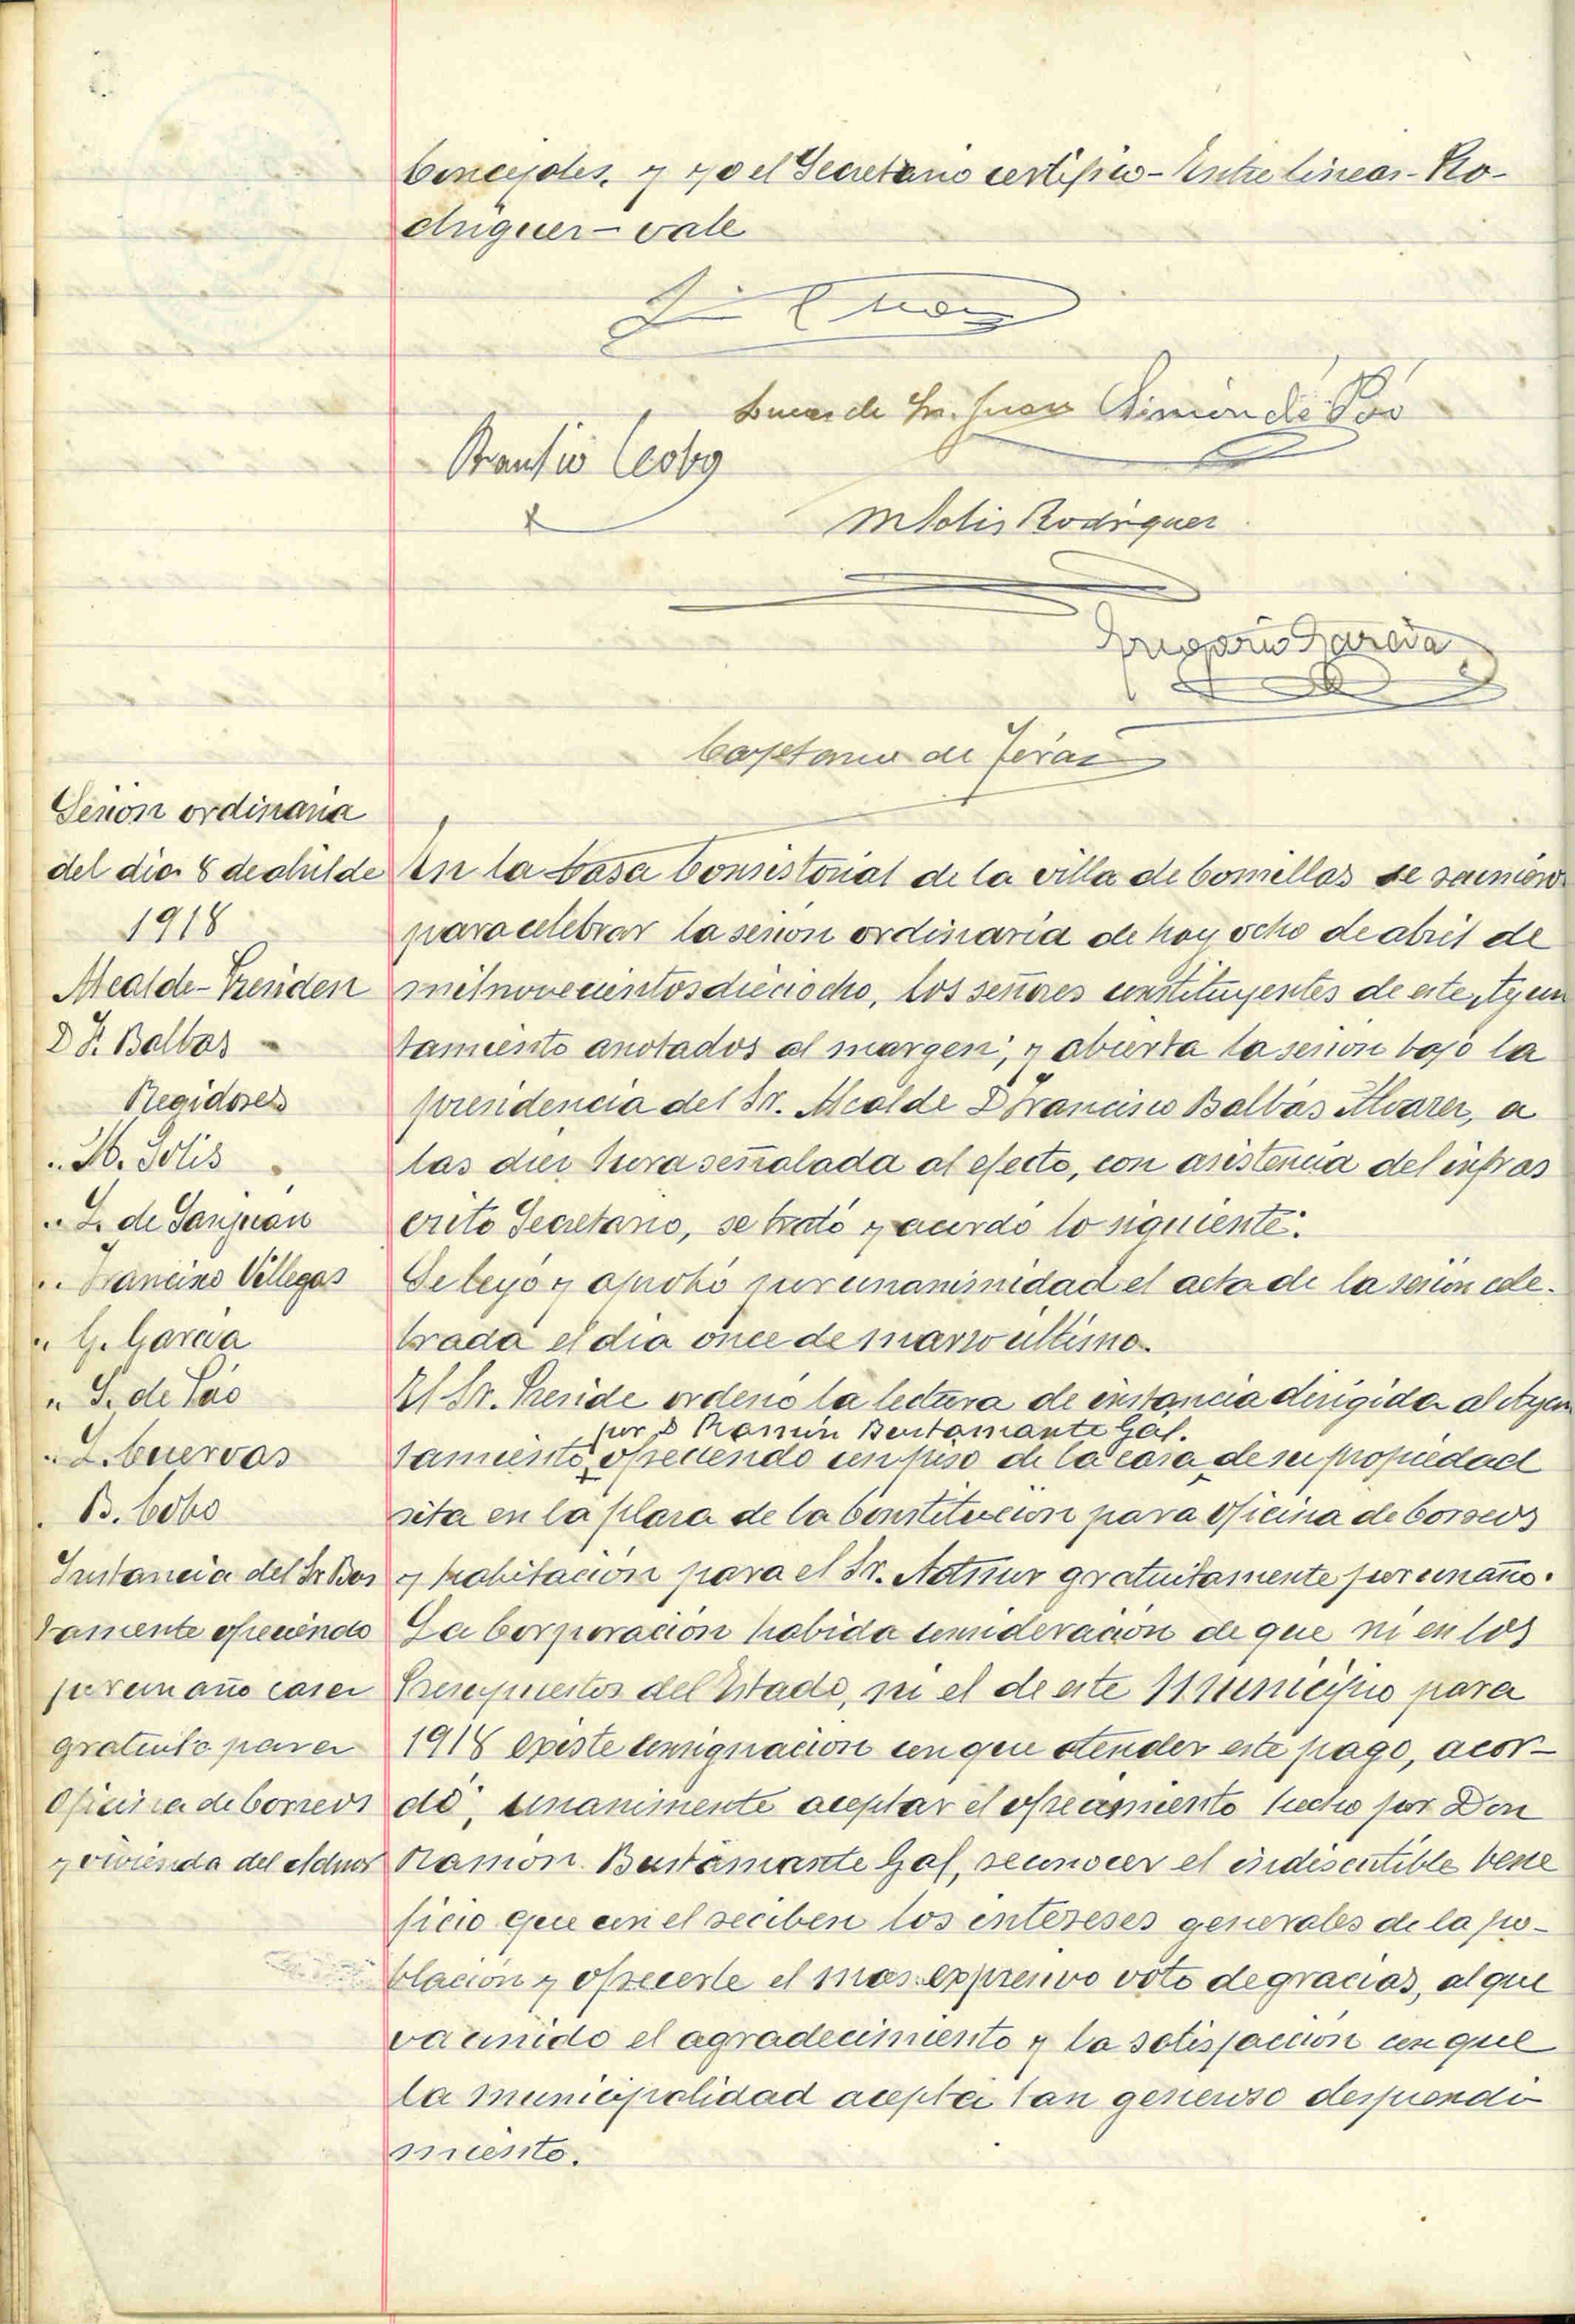 Concejales, y yo el Secretario certifico - Entre lineas - Ro-
driguez - vale
Lucas de Sn. Juan Simón de Póo
Braulio Cobo
M Solis Rodriguez
Gregorio Garcia
Cayetano de Terán
Sesion ordinaria
del dia 8 de abril de
1918
Alcalde-Presiden
D F. Balbas
Regidores
" M. Solis
" L. de Sanjuan
" Francisco Villegas
" G. Garcia
" S. de Póo
" L. Cuervas
" B. Cobo
Instancia del Sr Bus
tamente ofreciendo
por un año casa
gratuita para
Oficina de Correos
y vivienda del Admor
En la Casa Consistorial de la villa de Comillas se reunieron
para celebrar la sesion ordinaria de hoy ocho de abril de
mil novecientos dieciocho, los señores constituyentes de este Ayun
tamiento anotados al margen; y abierta la sesion bajo la
presidencia del Sr. Alcalde D Francisco Balbás Alvarez, a
las diez hora señalada al efecto, con asistencia del infras
crito Secretario, se trató y acordó lo siguiente:
Se leyó y aprobó por unanimidad el acta de la sesión cele-
brada el dia once de marzo último.
El Sr. Preside ordenó la lectura de instancia dirigida al Ayun
por D Ramón Bustamante Gaf.
tamiento ofreciendo un piso de la casa de su propiedad
sita en la plaza de la Constitucion para oficina de Correos
y habitación para el Sr. Admor gratuitamente por un año.
La Corporación habida consideración de que ni en los
Presupuestos del Estado, ni el de este Municipio para
1918 existe consignacion con que atender este pago, acor-
dó, unanimente aceptar el ofrecimiento hecho por Don
Ramón Bustamante Gaf, reconocer el indiscutible bene
ficio que con el reciben los intereses generales de la po-
blación y ofrecerle el mas expresivo voto de gracias, al que
va unido el agradecimiento y la satisfacción con que
la municipalidad acepta tan generoso desprendi
miento.